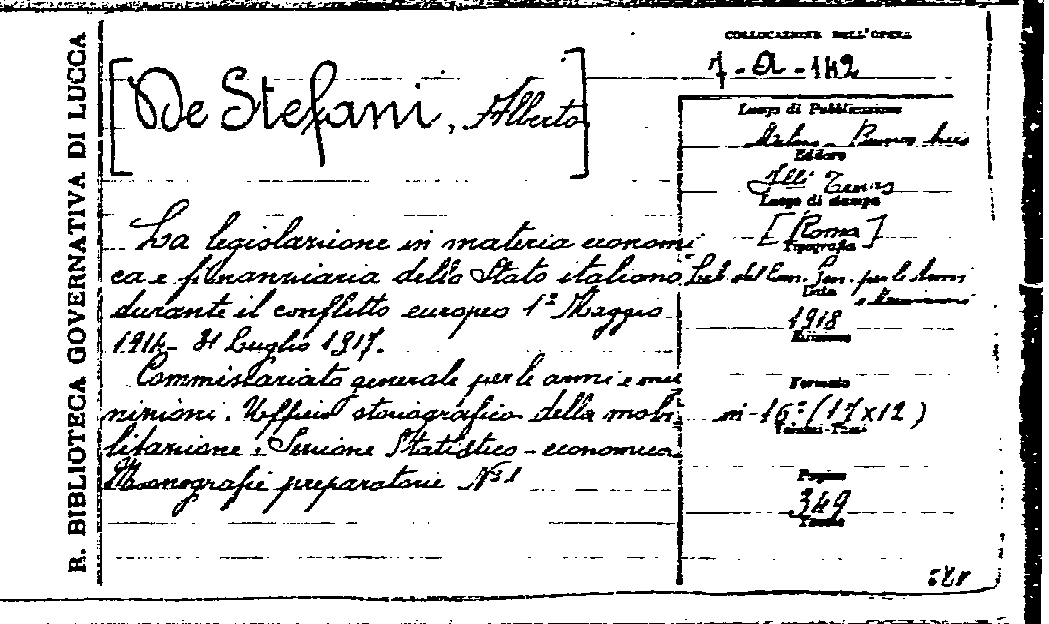 R. BIBLIOTECA GOVERNATIVA DI LUCCA
[De Stefani, Alberto]
La legislazione in materia economi
ca e finanziaria dello Stato italiano
durante il conflitto europeo 1º Maggio
1914 - 31 Luglio 1917.
Commissariato generale per le armi e mu
nizioni. Ufficio storiografico della mobi
litazione. Sezione Statistico-economica
Monografie preparatorie Nº 1
COLLOCAZIONE DELL'OPERA
7-A-142
Luogo di Pubblicazione
Milano -
Editore
Flli Treves
Luogo di stampa
[Roma]
Tipografia
per le Armi
e Munizioni
Data
1918
Edizione
Formato
in-16º (17x12)
Volumi-Tomi
Pagine
349
Tavole